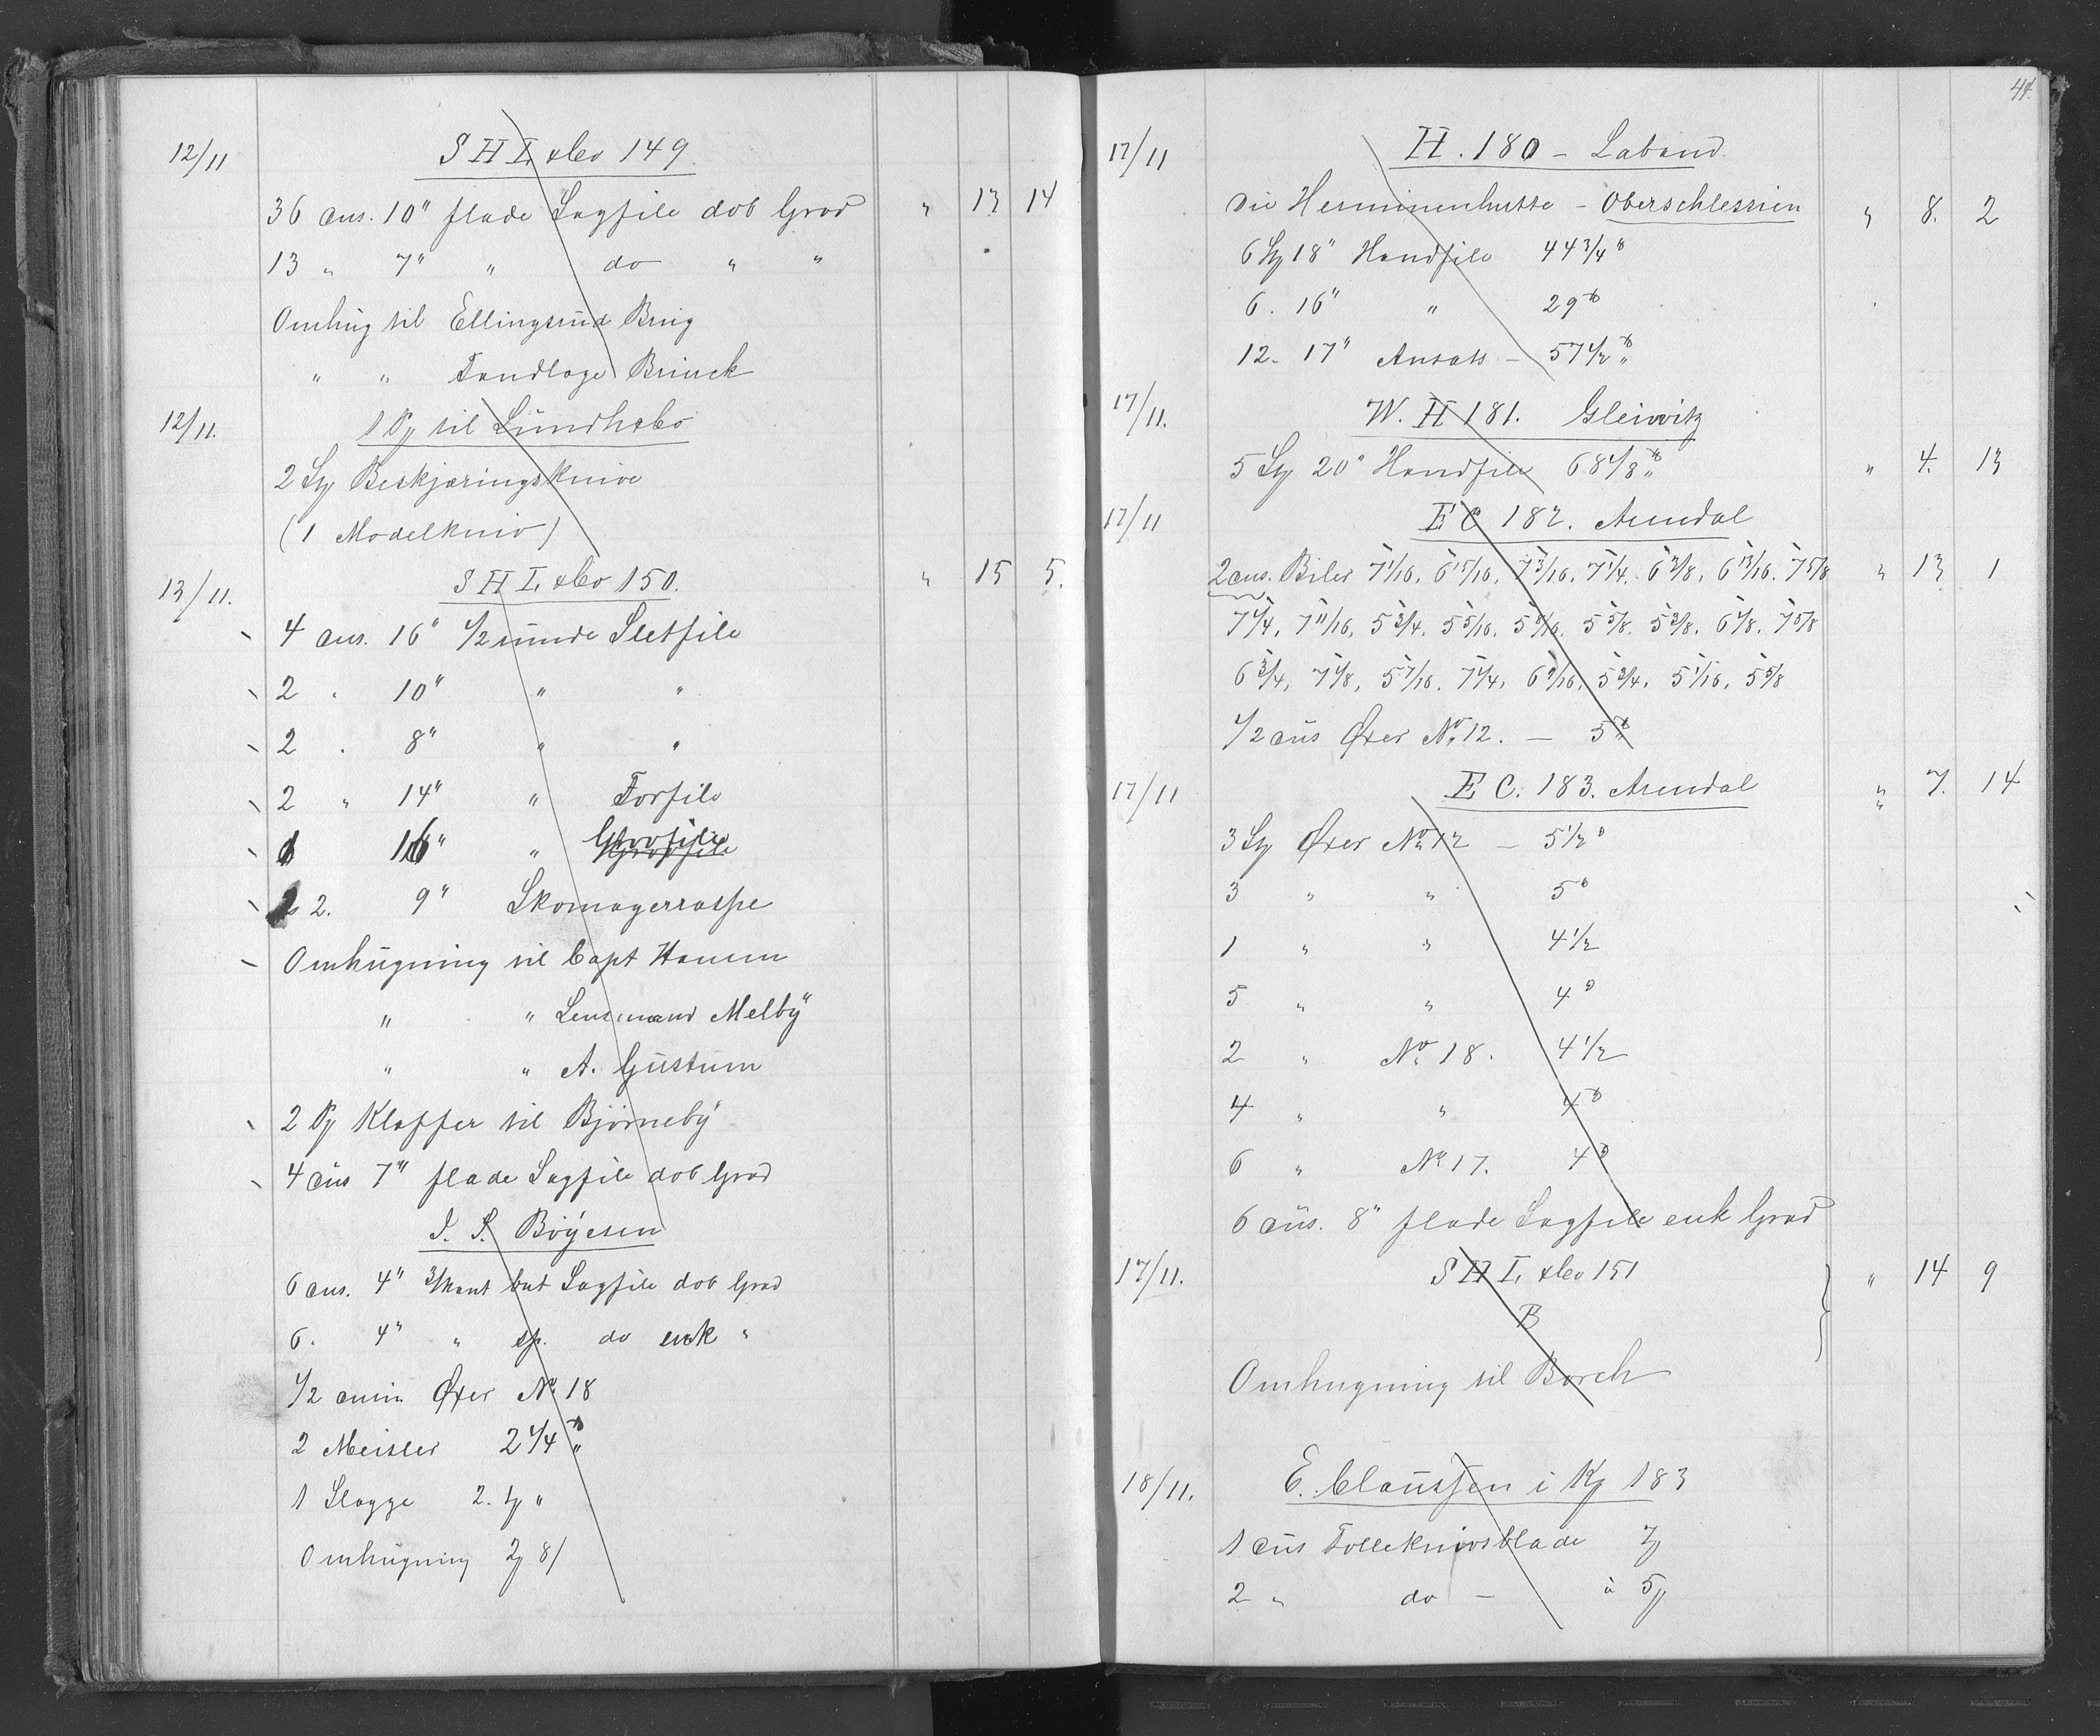 12/11 S H L & Co 149
36 dus. 10" flade Sagfile dob Grad " 13 14
13 " 7" " do " "
Omhug til Ellingsrud Brug
" " Tandlæge Brinck
12/11. 1 Pk til Lundh & Co
2 Stk Beskjæringsknive
(1 Modelkniv)
13/11. S H L & Co 150. " 15 5.
4 dus. 16" 1/2 runde Sletfile
2 " 10" " "
2 . 8" " "
2 " 14" " Forfile
1 16" " Grovfile
2. 9" Skomagerraspe
Omhugning til Capt Hamm
" " Lensmand Melby
" " A. Gustum
2 Pk Klaffer til Bjørneby
4 dus 7" flade Sagfile dob Grad
I. S. Böyesen
6 dus. 4" 3/kant but Sagfile dob Grad
6. 4" " sp. do enk "
1/2 dusin Øxer No 18
2 Meisler 2 1/4 "
1 Slægge 2. "
Omhugning 8/
44.
17/11 H. 180 – Laband
Die Herminenhutte – Oberschlessien " 8. 2
6 Stk 18" Handfile 44 3/4 "
6. 16" " 29
12. 17" Ansats – 57 1/2 "
17/11. W. H 181. Gleiwitz
5 Stk 20" Handfile 68 1/8 " " 4. 13
17/11 E C 182. Arendal
2 dus. Biler 7 1/16, 6 15/16, 7 3/16, 7 1/4, 6 3/8, 6 13/16, 7 5/8 " 13 1
7 1/4, 7 11/16, 5 3/4, 5 5/16, 5 9/16, 5 5/8, 5 3/8, 6 1/8, 7 5/8
6 3/4, 7 1/8, 5 7/16, 7 1/4, 6 9/16, 5 3/4, 5 1/16, 5 5/8
1/2 dus Øxer No 12. – 5
17/11 E C. 183. Arendal " 7. 14
3 Stk Øxer No 12 – 5 1/2
3 " " 5
1 " " 4 1/2
5 " " 4
2 " No 18. 4 1/2
4 " " 4
6 " No 17. 4
6 dus. 8" flade Sagfile enk Grad
17/11. S H L & Co 151 " 14 9
B
Omhugning til Borch
18/11. E. Claussen i Kj 183
1 dus Tolleknivsblade 7
2 " do – à 5